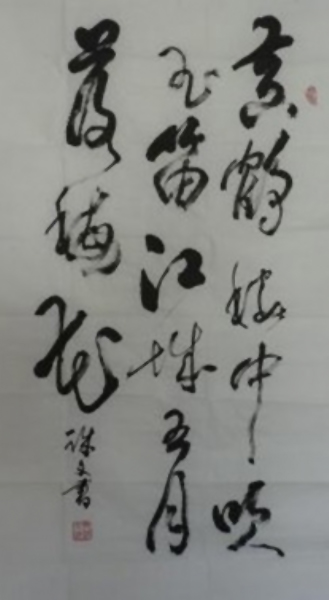 黄鹤楼中吹
玉笛江城五月
落梅花